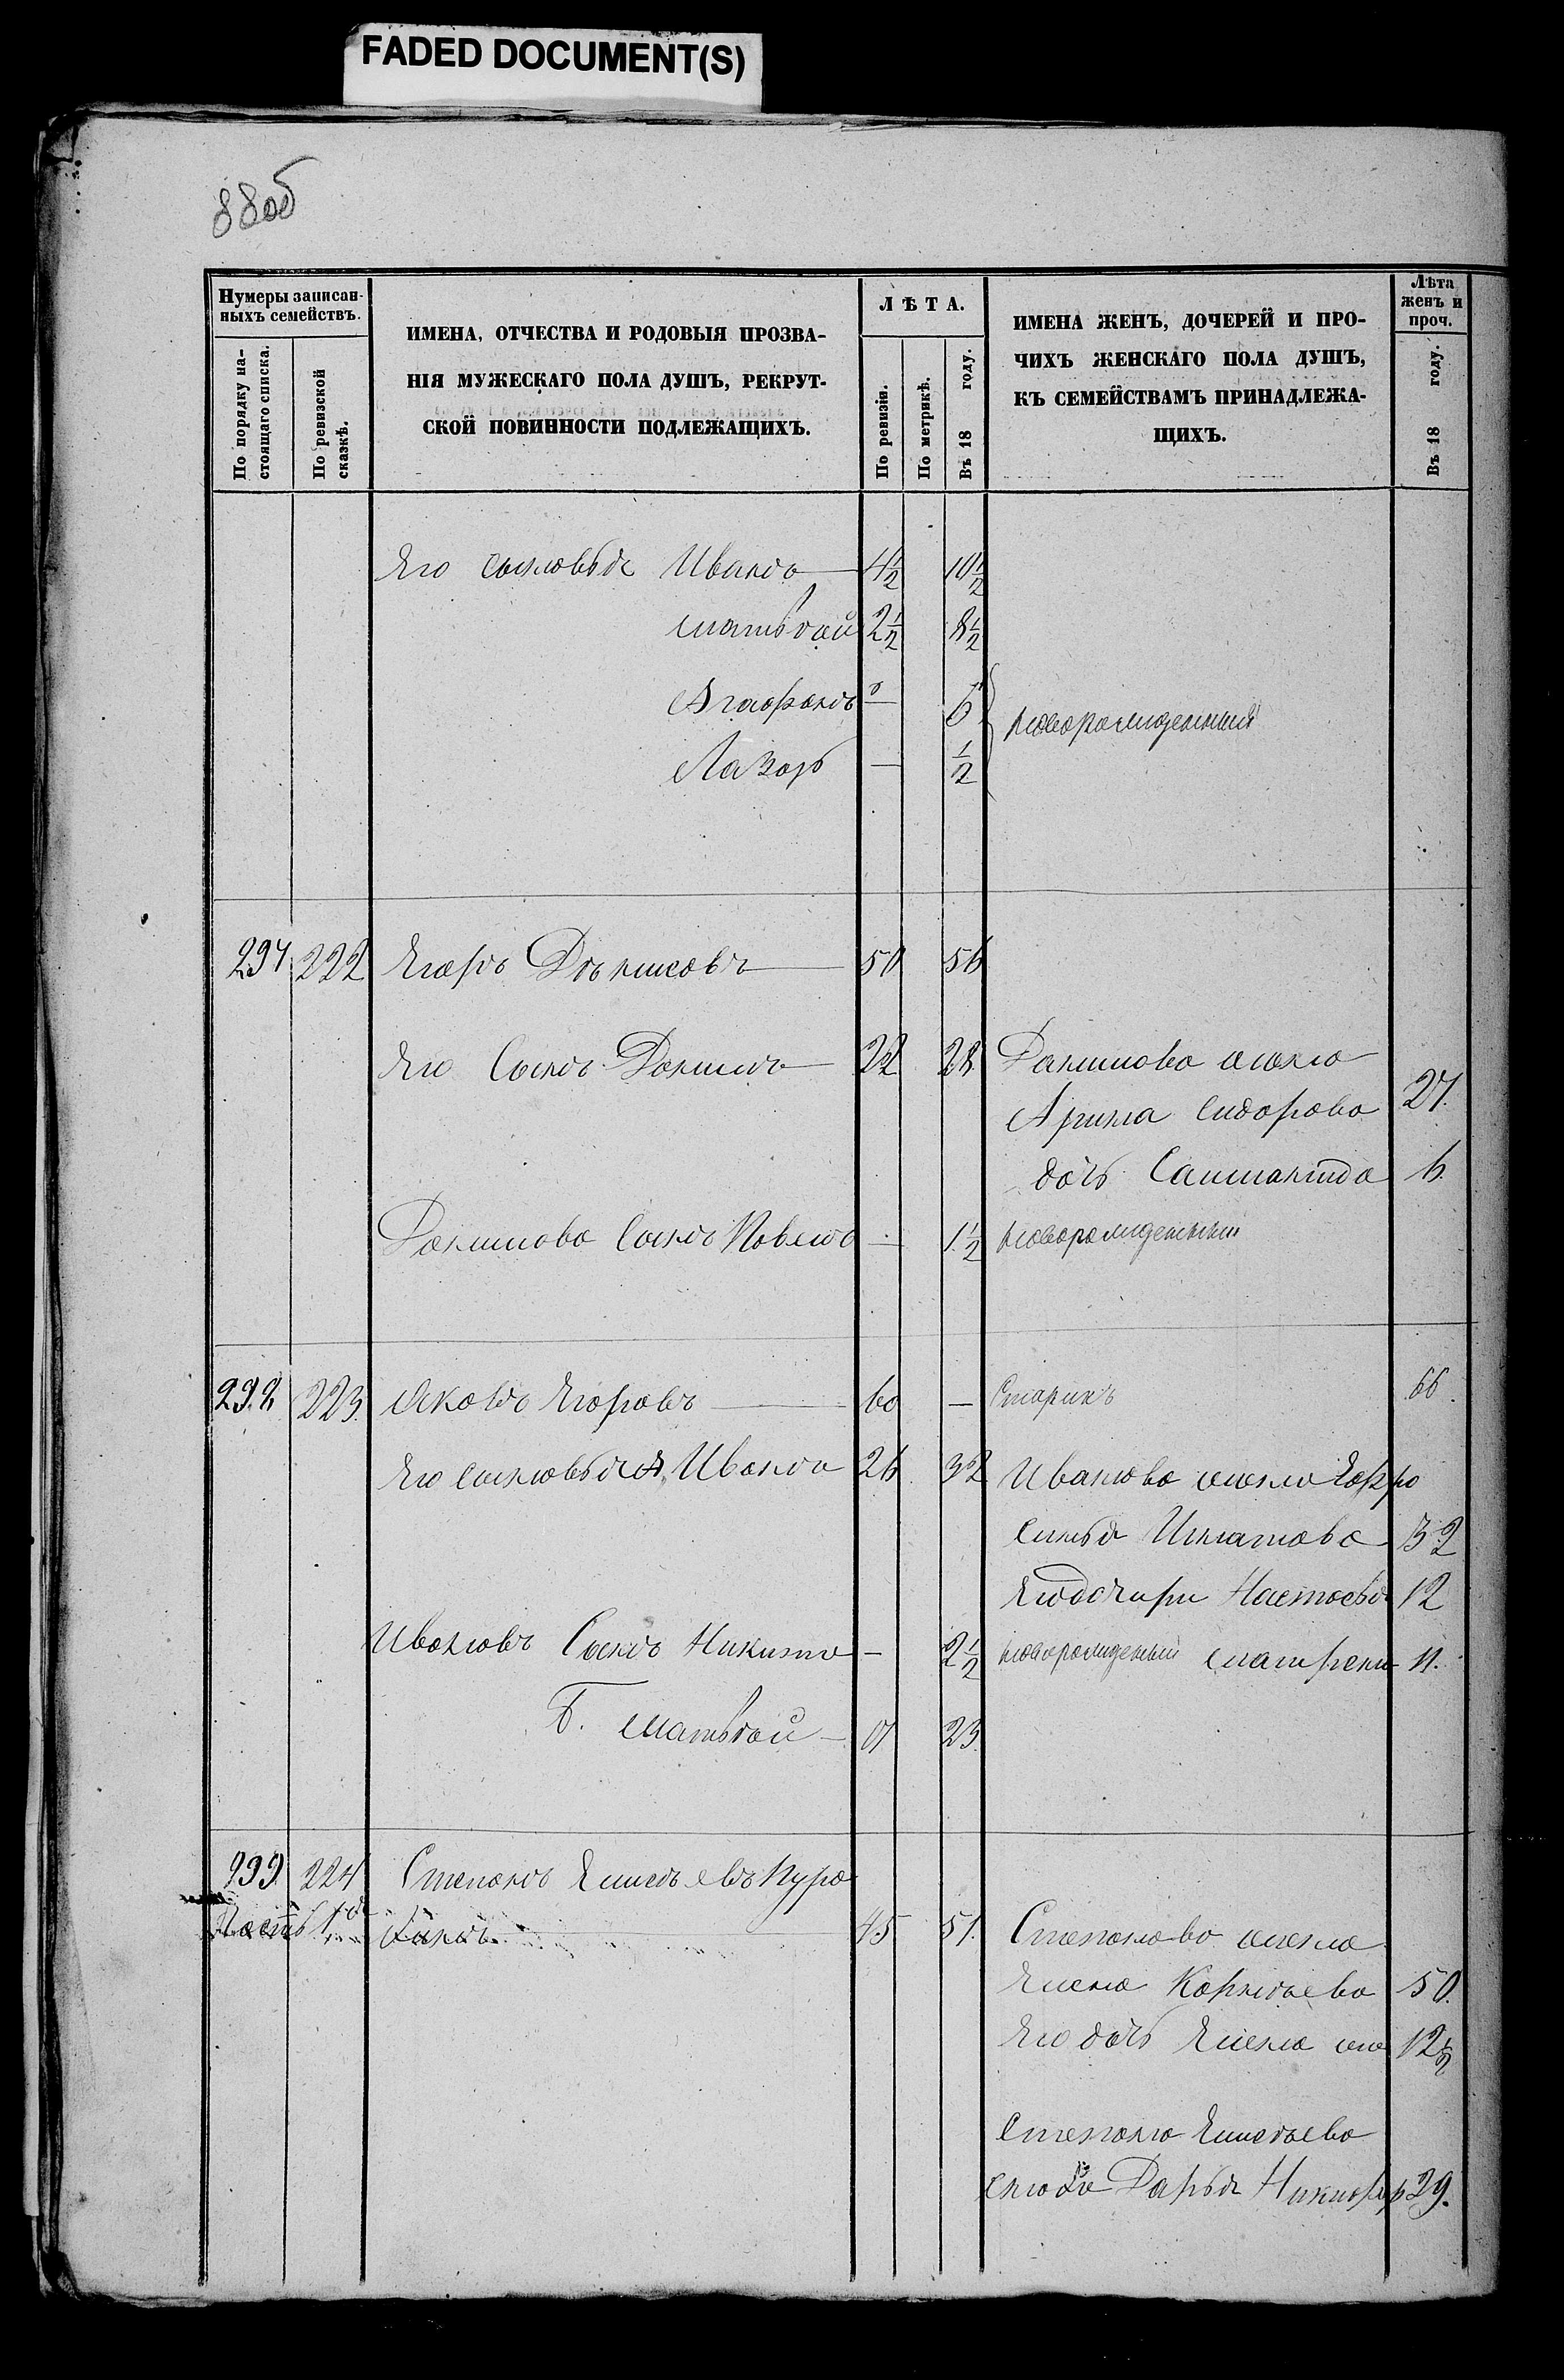 FADED DOCUMENT(S)
88об
Нумеры записан-
ныхъ семействъ.
По порядку на-
стоящаго списка.
По ревизской
сказкѣ.
ИМЕНА, ОТЧЕСТВА И РОДОВЫЯ ПРОЗВА-
НІЯ МУЖЕСКАГО ПОЛА ДУШЪ, РЕКРУТ-
СКОЙ ПОВИННОСТИ ПОДЛЕЖАЩИХЪ.
ЛѢТА.
По ревизіи.
По метрикѣ.
Въ 18 году.
ИМЕНА ЖЕНЪ, ДОЧЕРЕЙ И ПРО-
ЧИХЪ ЖЕНСКАГО ПОЛА ДУШЪ,
КЪ СЕМЕЙСТВАМЪ ПРИНАДЛЕЖА-
ЩИХЪ.
Лѣта
женъ и
проч.
Въ 18 году.
Его сыновья Иванъ 4½ 10½
Матвѣй 2½ 8½
Агафонъ — 6
Лазарь — ½
новорожденныя
297 222 Егоръ Денисовъ 50 56
Его Сынъ Данилъ 22 28 Данилова жена
Арина Сидорова 27.
дочь 6.
Данилова Сынъ Павелъ — 1½ новорожденный
298 223. Яковъ Егоровъ 60 — Старикъ 66
Его сыновья А, Иванъ 26 32 Иванова жена Ефро
синья Игнатова 32
Его дочери Настасья 12
Ивановъ Сынъ Никита — 2½ новорожденый Матрена 11.
Б. Матвѣй 17 23.
299. 224 Степанъ Елисѣевъ Пура
Часть 1я 45 51. Степанова жена
Елена Корнѣева 50.
Его дочь Елена 12½
Степана Елисѣева
сноха Дарья Никифор 29.